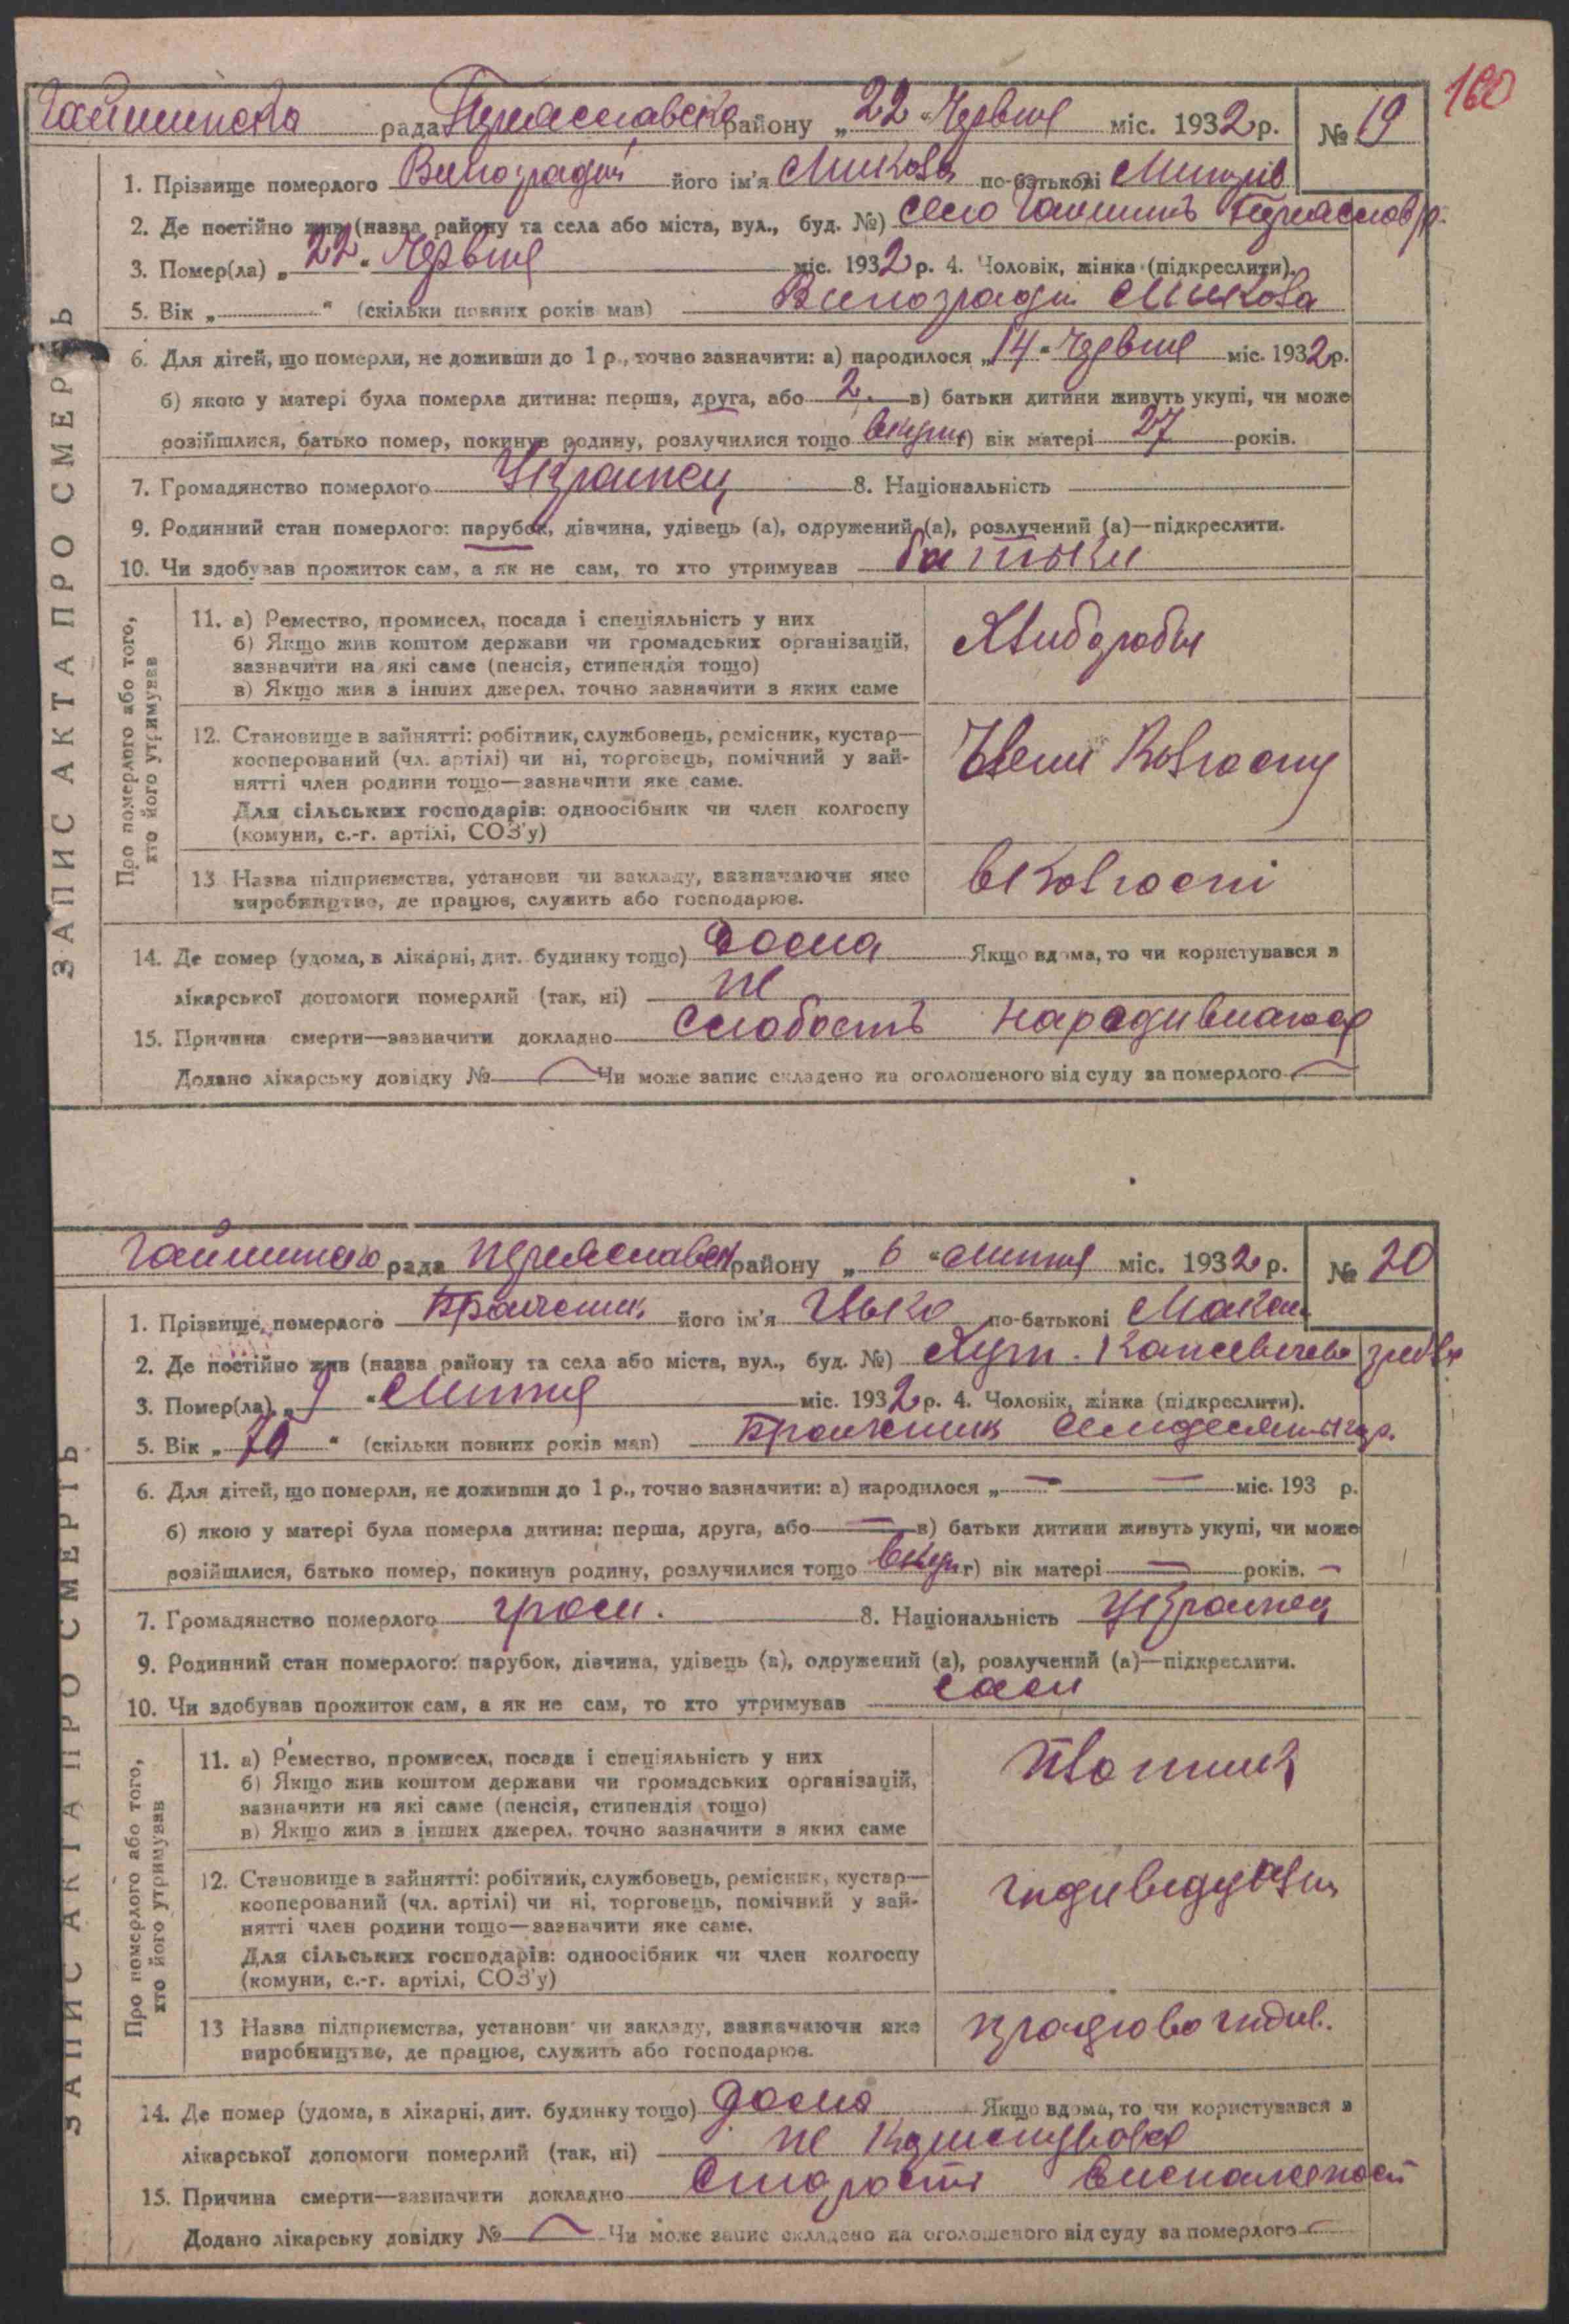 160
Гайшинська рада Переяславська району „22“ Червня міс. 1932 р. № 19
1. Прізвище померлого Виноградий його ім'я Микола по-батькові
2. Де постійно жив (назва району та села або міста, вул., буд. №) село Гайшинъ Переяслав р.
3. Помер(ла) „22“ Червня міс. 1932 р. 4. Чоловік, жінка (підкреслити).
5. Вік „ “ (скільки повних років мав) Виноградий Микола
6. Для дітей, що померли, не доживши до 1 р., точно зазначити: а) народилося „14“ Червня міс. 1932 р.
б) якою у матері була померла дитина: перша, друга, або 2. в) батьки дитини живуть укупі, чи може
розійшлися, батько помер, покинув родину, розлучилися тощо вкупі г) вік матері 27 років.
7. Громадянство померлого Українец 8. Національність
9. Родинний стан померлого: парубок, дівчина, удівець (а), одружений (а), розлучений (а)—підкреслити.
10. Чи здобував прожиток сам, а як не сам, то хто утримував батьки
ЗАПИС АКТА ПРО СМЕРТЬ
Про померлого або того, хто його утримував
11. а) Ремество, промисел, посада і спеціяльність у них
б) Якщо жив коштом держави чи громадських організацій,
зазначити на які саме (пенсія, стипендія тощо)
в) Якщо жив з інших джерел, точно зазначити з яких саме
Хлибороби
12. Становище в зайнятті: робітник, службовець, ремісник, кустар—
кооперований (чл. артілі) чи ні, торговець, помічний у зай-
нятті член родини тощо—зазначити яке саме.
Для сільських господарів: одноосібник чи член колгоспу
(комуни, с.-г. артілі, СОЗ'у)
Члени Колгоспу
13 Назва підприємства, установи чи закладу, зазначаючи яке
виробництво, де працює, служить або господарює.
вКолгоспі
14. Де помер (удома, в лікарні, дит. будинку тощо) дома Якщо вдома, то чи користувався з
лікарської допомоги померлий (так, ні) не
15. Причина смерти—зазначити докладно Слабость
Додано лікарську довідку № Чи може запис складено на оголошеного від суду за померлого
рада Переяславськ району „6“ Липня міс. 1932 р. № 20
1. Прізвище померлого його ім'я по-батькові
2. Де постійно жив (назва району та села або міста, вул., буд. №) Хут.
3. Помер(ла) Липня міс. 1932 р. 4. Чоловік, жінка (підкреслити).
5. Вік „70“ (скільки повних років мав)
6. Для дітей, що померли, не доживши до 1 р., точно зазначити: а) народилося „—“ — міс. 193 р.
б) якою у матері була померла дитина: перша, друга, або — в) батьки дитини живуть укупі, чи може
розійшлися, батько помер, покинув родину, розлучилися тощо вкупі г) вік матері — років. —
7. Громадянство померлого гром. 8. Національність Українец
9. Родинний стан померлого: парубок, дівчина, удівець (а), одружений (а), розлучений (а)—підкреслити.
10. Чи здобував прожиток сам, а як не сам, то хто утримував сам
ЗАПИС АКТА ПРО СМЕРТЬ
Про померлого або того, хто його утримував
11. а) Ремество, промисел, посада і спеціяльність у них
б) Якщо жив коштом держави чи громадських організацій,
зазначити на які саме (пенсія, стипендія тощо)
в) Якщо жив з інших джерел, точно зазначити з яких саме
12. Становище в зайнятті: робітник, службовець, ремісник, кустар—
кооперований (чл. артілі) чи ні, торговець, помічний у зай-
нятті член родини тощо—зазначити яке саме.
Для сільських господарів: одноосібник чи член колгоспу
(комуни, с.-г. артілі, СОЗ'у)
13 Назва підприємства, установи чи закладу, зазначаючи яке
виробництво, де працює, служить або господарює.
14. Де помер (удома, в лікарні, дит. будинку тощо) дома Якщо вдома, то чи користувався з
лікарської допомоги померлий (так, ні) не
15. Причина смерти—зазначити докладно Старость
Додано лікарську довідку № Чи може запис складено на оголошеного від суду за померлого